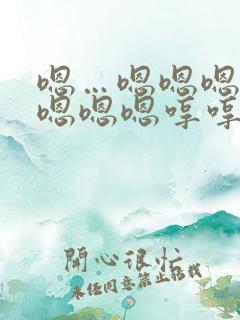 嗯…嗯嗯嗯
嗯嗯嗯哼哼
開心很忙
未经同意禁止转载